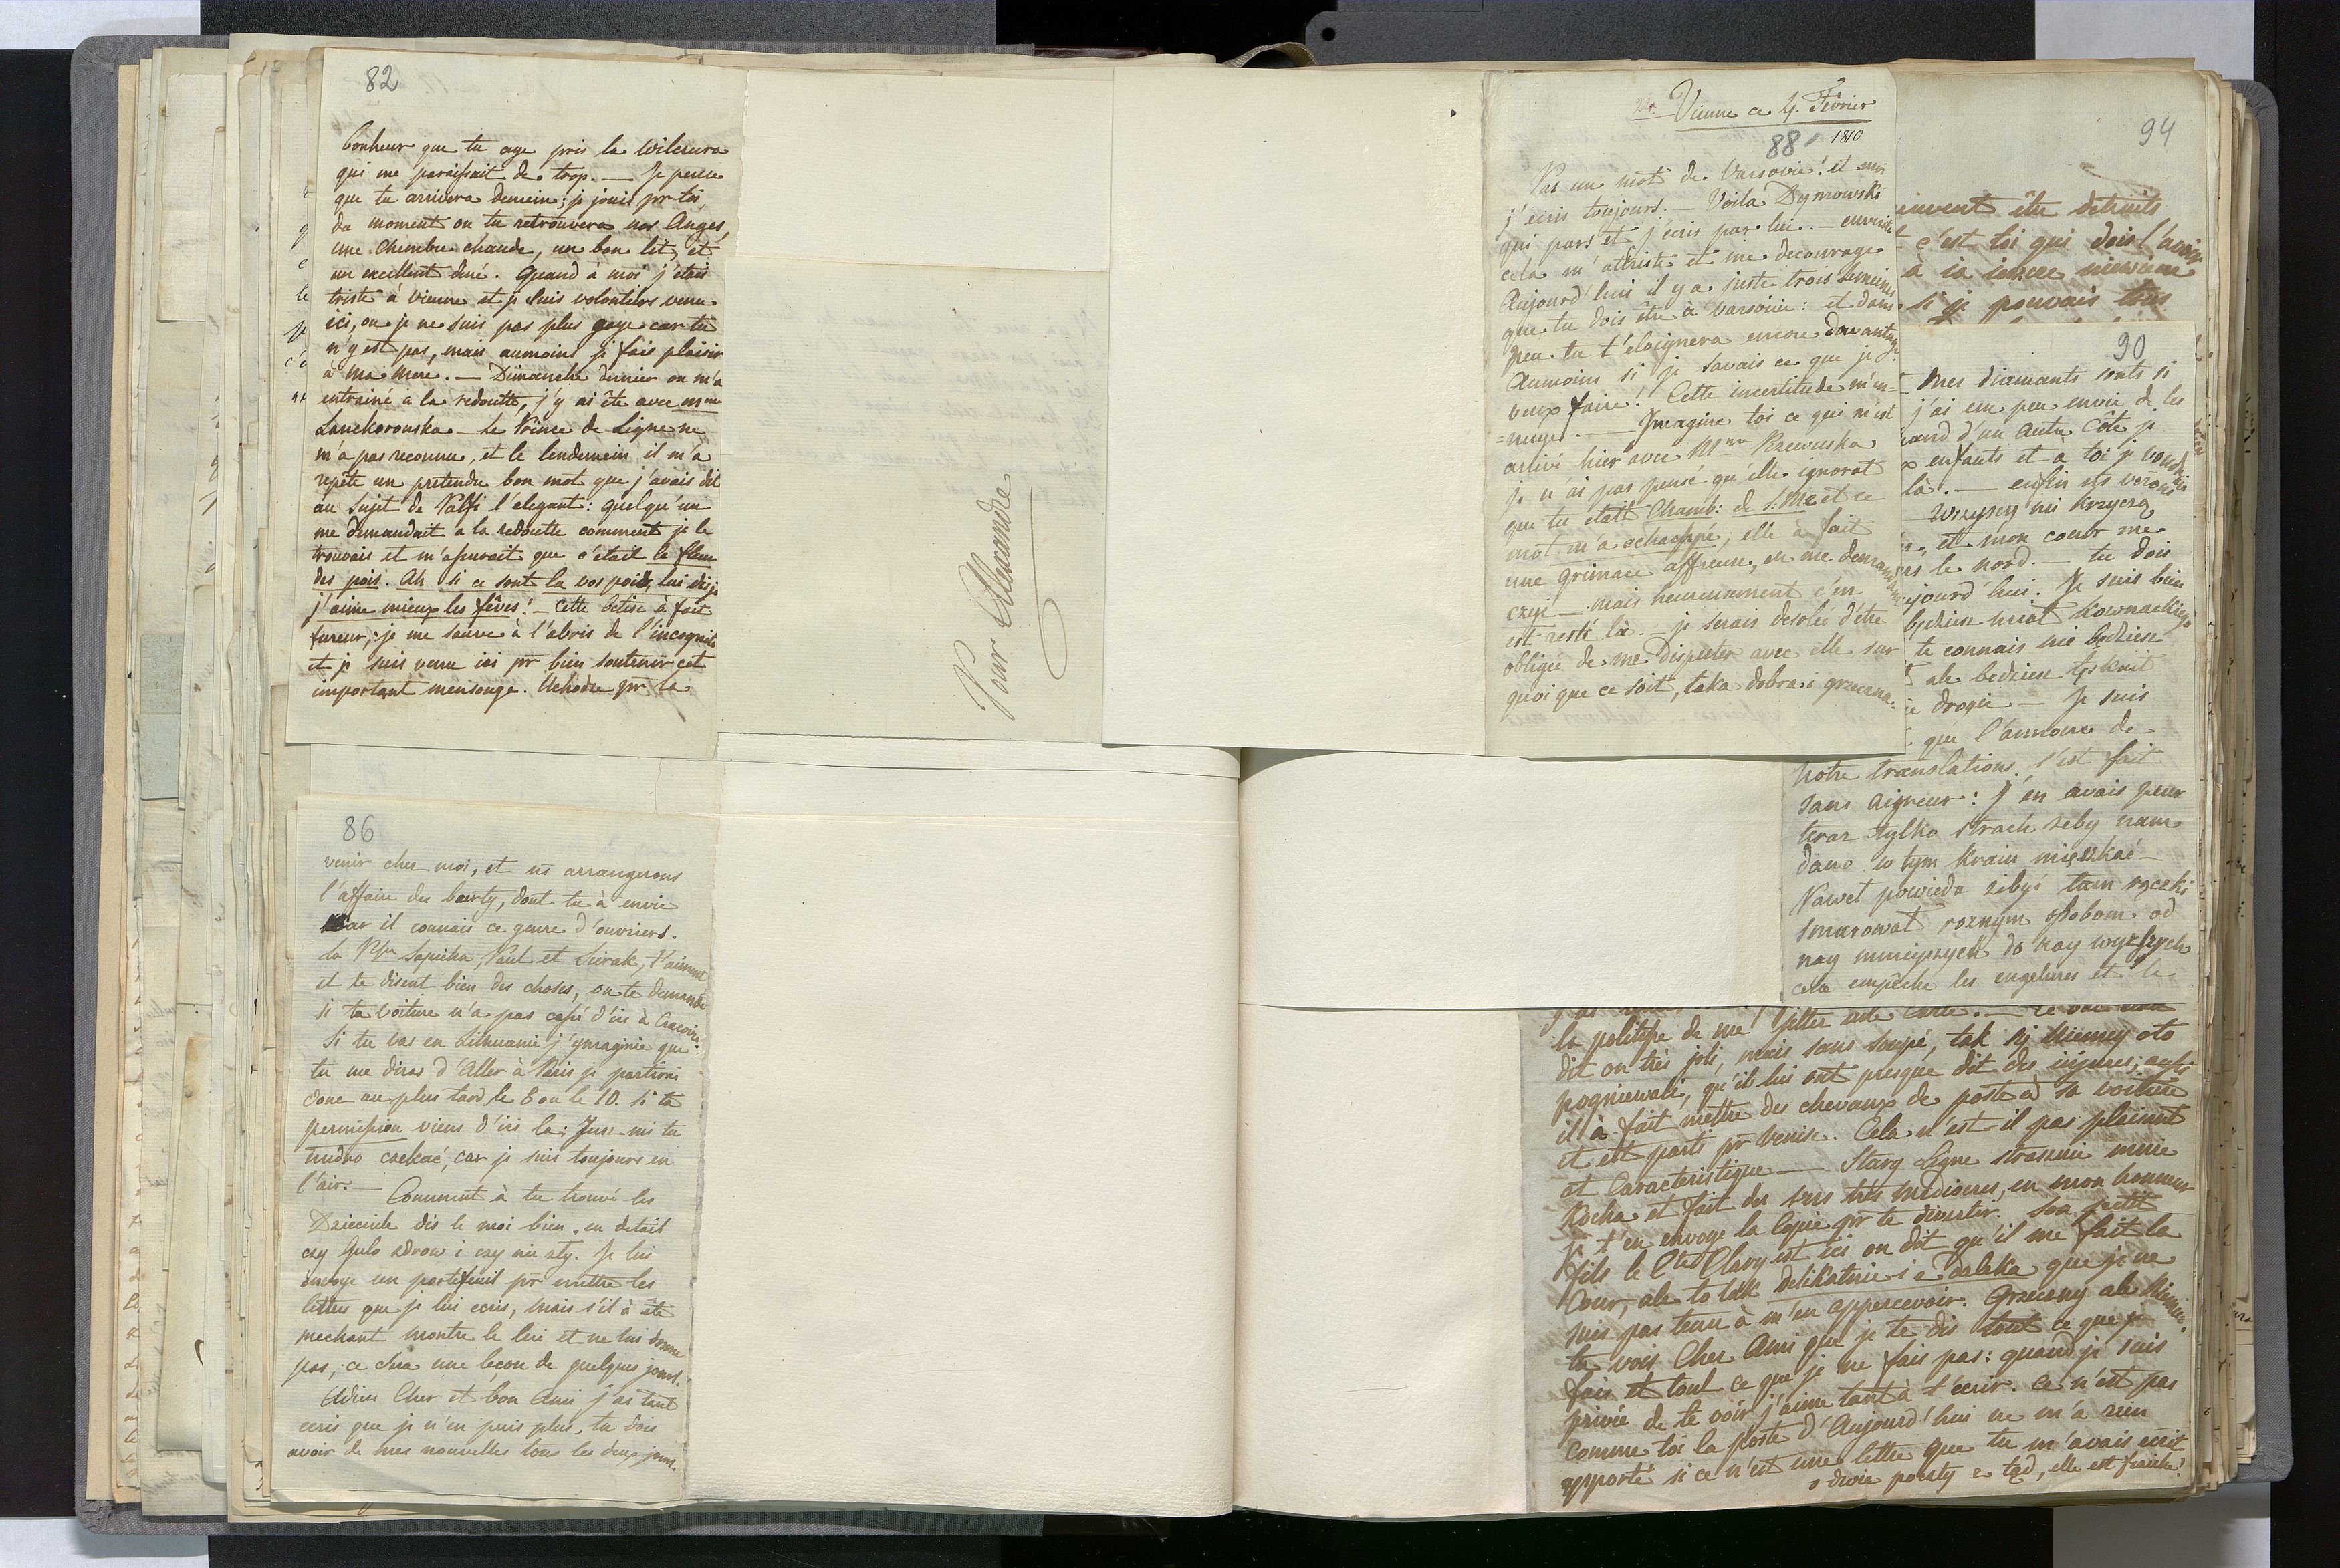 82
bonheur que tu aye pris la Wilczura
qui me paraissait de trop. — Je pense
que tu arrivera demain; je jouis pr toi,
du moment ou tu retrouvera nos Anges,
une chambre chaude, un bon lit, et
un excellent diné. Quand à moi j'étais
triste à Vienne et je suis volontiers venue
ici, ou je ne suis pas plus gaye car tu
n'y est pas, mais aumoins je fais plaisir
à Ma Mere. — Dimanche dernier on m'a
entrainé a la redoutte, j'y ai été avec Mme
Lanckoronska. Le Prince de Ligne ne
m'a pas reconnue, et le lendemain il m'a
repété un pretendu bon mot que j'avais dit
au sujet de Palfi l'elegant: quelqu'un
me demandait a la redoutte comment je le
trouvais et m'assurait que c'etait la fleur
des pois. Ah si ce sont la vos pois, lui dis je
j'aime mieux les fêves! — Cette betise à fait
fureur, je me sauve à l'abris de l'incognito
et je suis venue ici pr bien soutenir cet
important mensonge. Uchodze pr la
Pour Alexandre
86
venir chez moi, et ns arrangerons
l'affaire du , dont tu à envie
car il connais ce genre d'ouvriers.
La Psse Sapieha, Paul et Sierak, t'aiment
et te disent bien des choses, on te demande
si ta voiture n'a pas cassé d'ici à Cracovie.
Si tu vas en Lithuanie j'ymagine que
tu me diras d'Aller à Paris je partirai
donc au plus tard le 6 ou le 10. si ta
permission viens d'ici la: Jusz mi tu
trudno czekać, car je suis toujours en
l'air. — Comment à tu trouvé les
Dzieciule dis le moi bien en detail
czy Gulo zdrow i czy nie zly. Je lui
envoye un portefeuil pr mettre les
lettres que je lui ecris, mais s'il à été
mechant montre le lui et ne lui donne
pas, ce sera une leçon de quelques jours.
Adieu Cher et bon Ami j'ai tant
ecris que je n'en puis plus, tu dois
avoir de mes nouvelles tous les deux jours.
Vienne ce 4. Février
1810
88
Pas un mot de Varsovie! et moi
j'écris toujours. — Voila Dymowski
qui pars et j'écris par lui. — ensuite
cela m'attriste et me decourage
Aujourd'hui il y a juste trois semaines
que tu dois être à Varsovie: et dans
peu tu t'eloignera encore davantage
Aumoins si je savais ce que je
veux faire! Cette incertitude m'en-
=nuye. — Imagine toi ce qui m'est
arrivé hier avec Mme Rzewuska
je n'ai pas pensé qu'elle ignorat
que tu etait Chamb: de S: M: et ce
mot m'a echappé, elle à fait
une grimace affreuse, en me demandant
czyi — mais heureusement c'en
est resté là — je serais desolée d'etre
obligée de me disputer avec elle sur
quoi que ce soit, taka dobra i grzeczna.
94
euvent être detruits
c'est toi qui dois l'avoir
si je pouvais
90
Mes diamants sonts si
j'ai eu peu envie de les
quand d'un autre Côté je
enfants et à toi je voudrais
là. — enfin ns verons
Wszyscy krzyczą
et mon coeur me
le nord. — tu dois
aujourd'hui. Je suis bien
będziesz miał Kownackiego
te connais nie będziesz
ale będziesz tęsknił
drogie — Je suis
que l'annonce de
notre translations s'est fait
sans aigreur: j'en avais peur
teraz tylko strach zeby nam
dano w tym kraiu mięszkać —
Nawet powieda zebyś tam rączki
smarował roznym osobom od
nay mnieyszych do nay wyzszych
cela empêche les engelures et le
la politesse de me jetter une carte. —
dit on très joli, mais sans soupé, tak się Niemcy oto
pogniewali, qu'il lui ont presque dit des injures; aussi
il à fait mettre des chevaux de poste à sa voiture
et est parti pr Venise. Cela n'est-il pas plaisant
et Caracteristique — Stary Ligne strasznie mnie
Kocha et fait des vers très mediocres, en mon honneur
je t'en envoye la Copie pr te divertir. Son petit
fils le Cte Clary est ici on dit qu'il me fait la
Cour, ale to tak delikatnie i z daleka que je ne
suis pas tenu à m'en appercevoir. Grzeczny ale Niemiec.
tu vois Cher Ami que je te dis tout ce que je
fais et tout ce que je ne fais pas: quand je suis
privée de te voir j'aime tant à t'ecrir. Ce n'est pas
comme toi la poste d'Aujourd'hui ne m'a rien
apporté si ce n'est une lettre que tu m'avais ecrit
o dwie poczty z tąd, elle est fraiche!